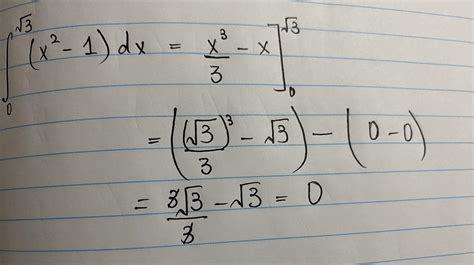 ∫₀^√3 (x² - 1) dx = x³/3 - x]₀^√3
= ((√3)³/3 - √3) - (0 - 0)
= 3√3/3 - √3 = 0